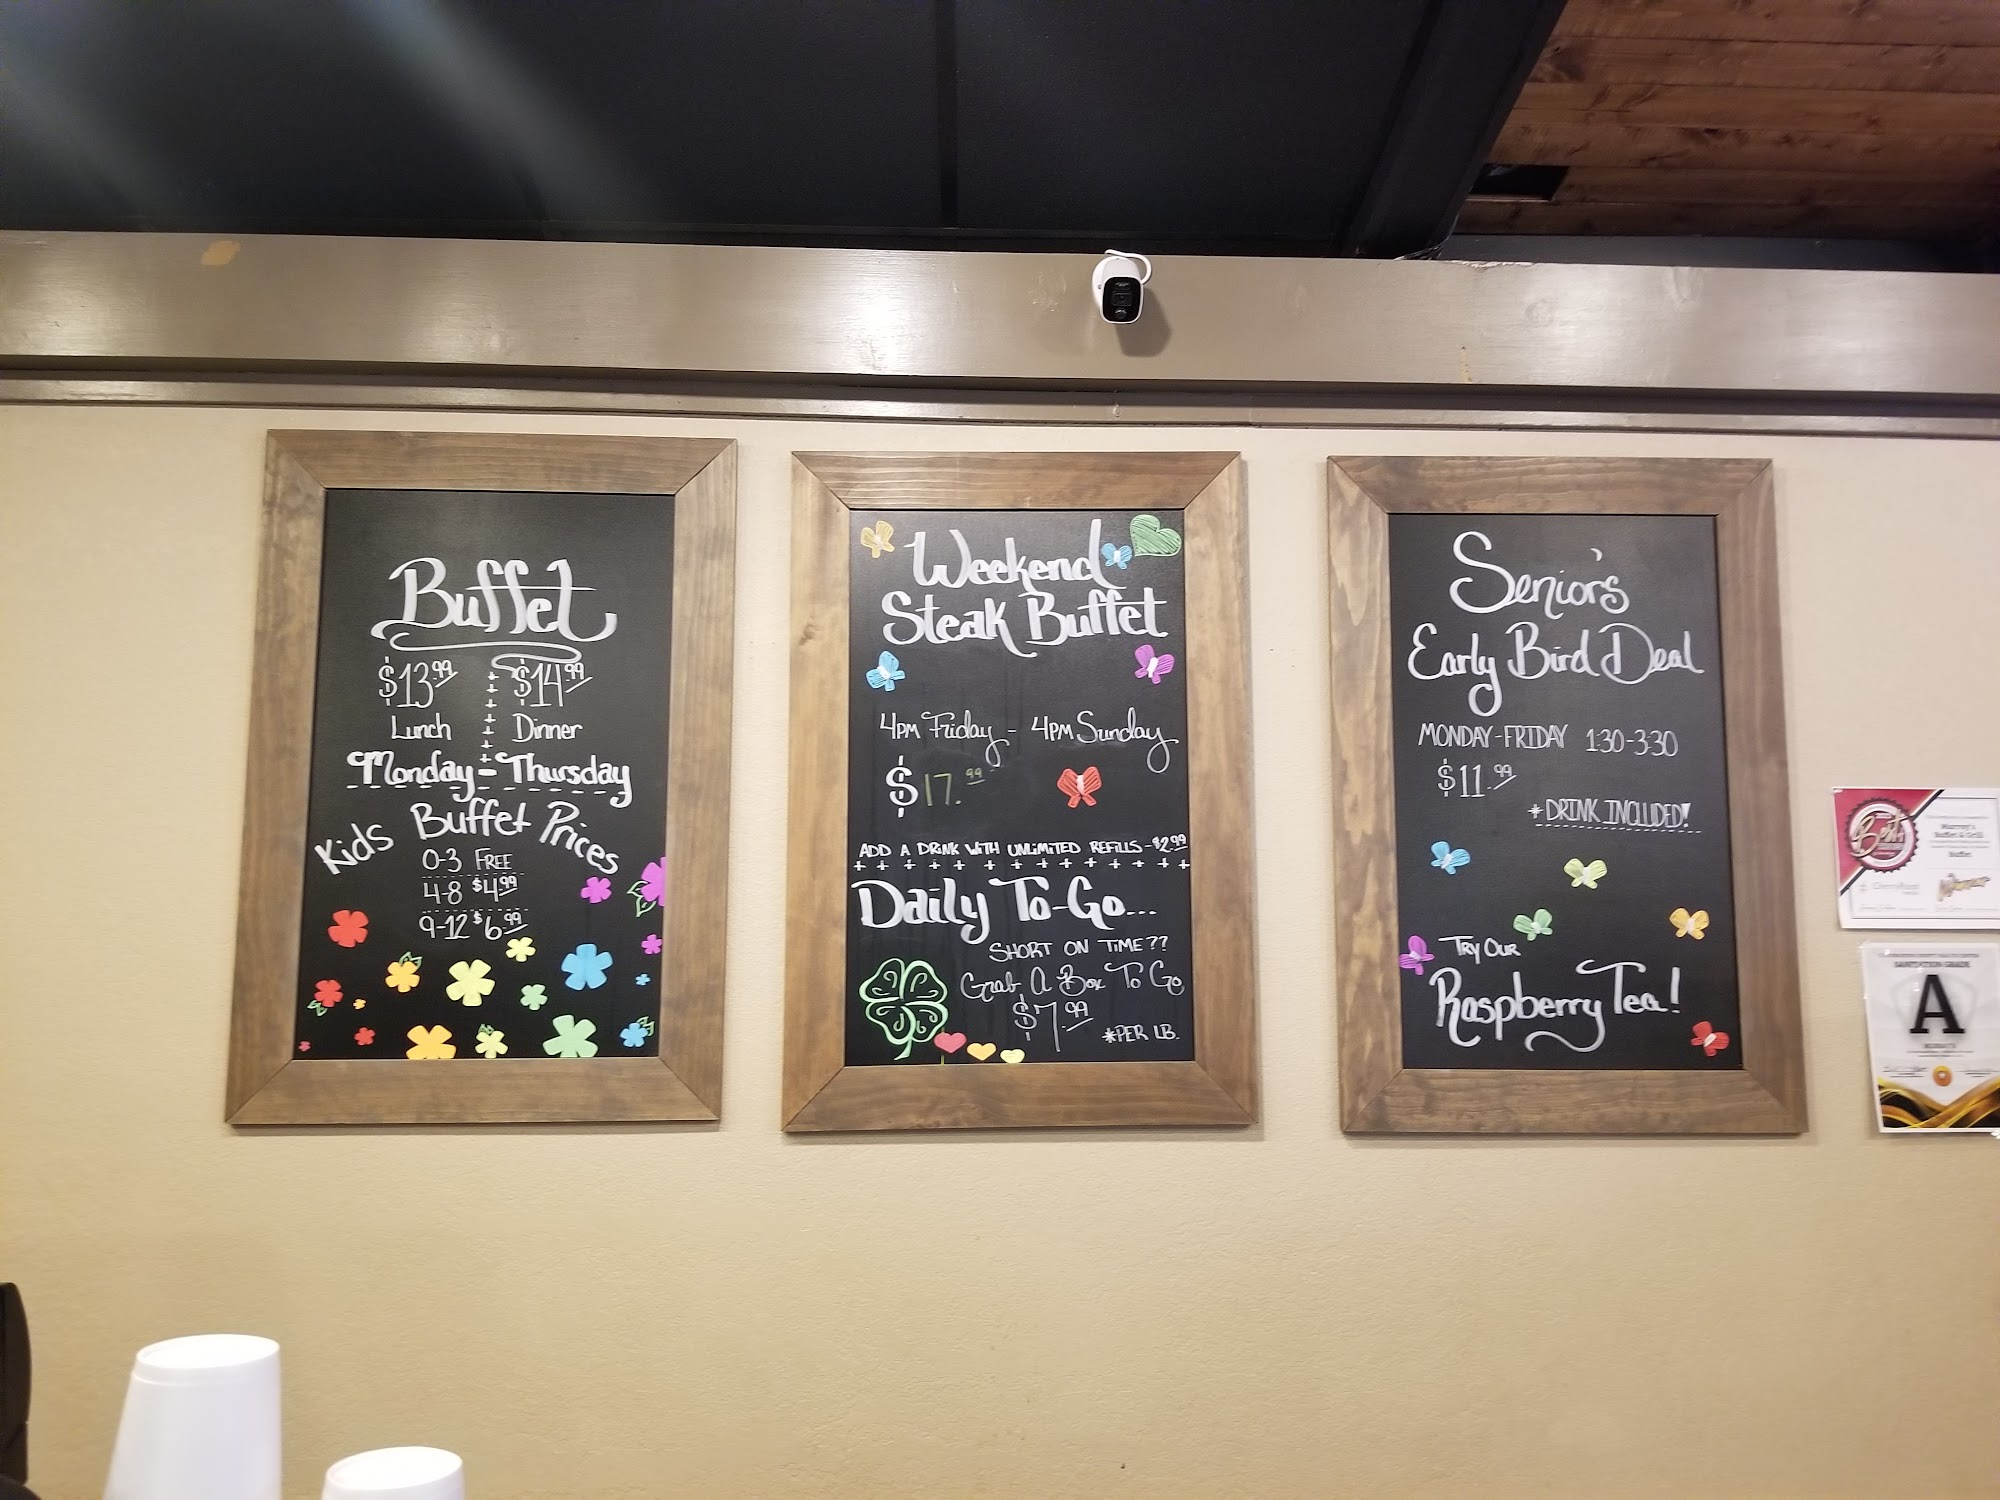 Buffet
$13.99 $14.99
Lunch Dinner
Monday-Thursday
Kids Buffet Prices
0-3 FREE
4-8 $4.99
9-12 $6.99
Weekend
Steak Buffet
4PM Friday - 4PM Sunday
$17.99
ADD A DRINK WITH UNLIMITED REFILLS - $2.99
Daily To-Go...
SHORT ON TIME??
Grab A Box To Go
$7.99
*PER LB.
Senior's
Early Bird Deal
MONDAY-FRIDAY 1:30-3:30
$11.99
*DRINK INCLUDED!
TRY OUR
Raspberry Tea!
Best
Murray's
Buffet & Grill
Buffet
SANITATION GRADE
A